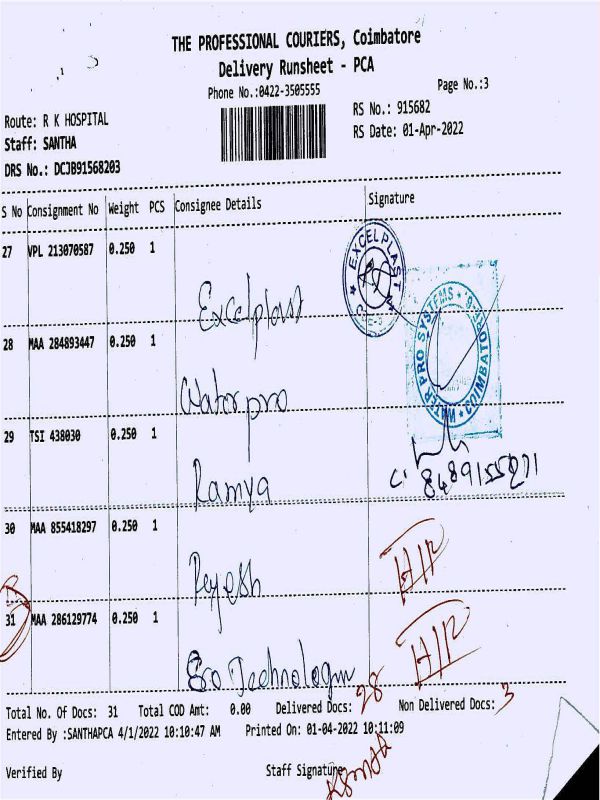 THE PROFESSIONAL COURIERS, Coimbatore
Delivery Runsheet - PCA
Phone No.:0422-3505555
Page No.:3
Route: R K HOSPITAL
RS No.: 915682
Staff: SANTHA
RS Date: 01-Apr-2022
DRS No.: DCJB91568203
S No Consignment No Weight PCS Consignee Details Signature
27 VPL 213070587 0.250 1
EXCELPLAST
Excelplast
28 MAA 284893447 0.250 1
WATER PRO SYSTEMS * COIMBATORE
Water pro
29 TSI 438030 0.250 1
Ramya
8489155271
30 MAA 855418297 0.250 1
H/P
31 MAA 286129774 0.250 1
H/P
Eco Technologin
Total No. Of Docs: 31 Total COD Amt: 0.00 Delivered Docs: 28 Non Delivered Docs: 3
Entered By :SANTHAPCA 4/1/2022 10:10:47 AM Printed On: 01-04-2022 10:11:09
Verified By Staff Signature